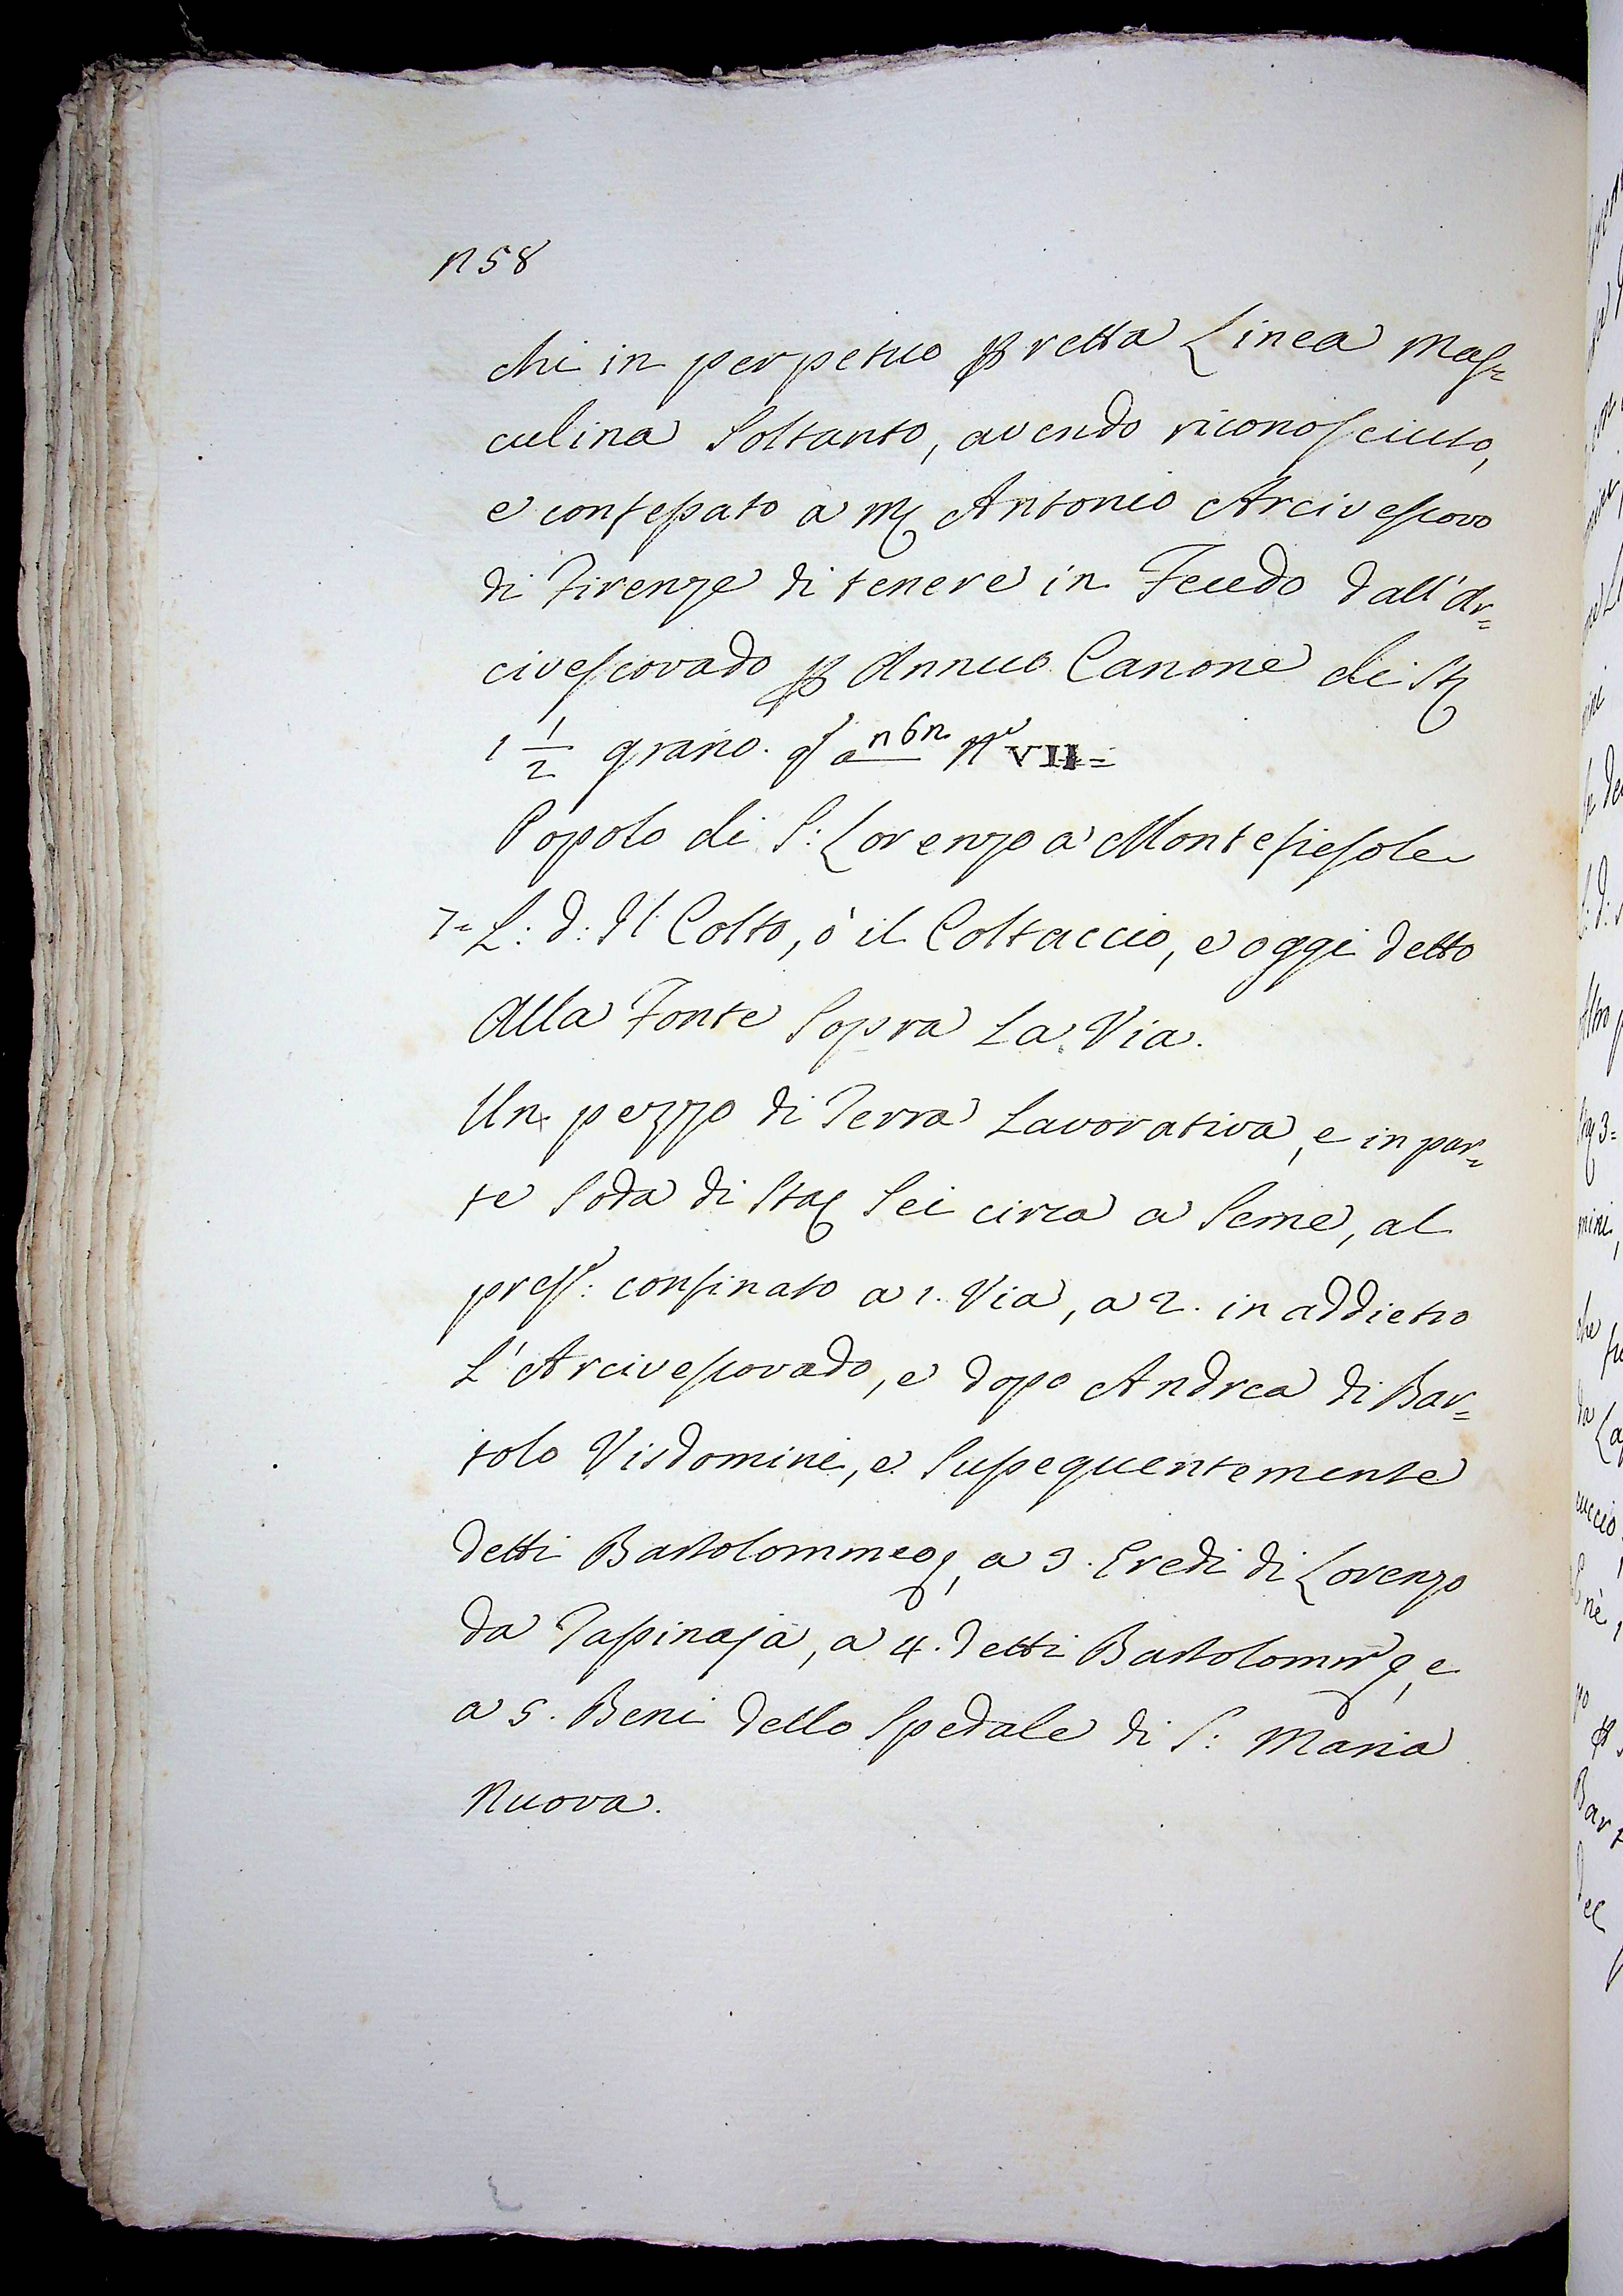 n 58
chi in perpetuo p retta Linea mas=
culina Soltanto, avendo riconosciuto,
e confessato a M Antonio Arcivescovo
di Firenze di tenere in Feudo dall'Ar=
civescovado p Annuo Canone di St
1 1/2 grano. n 6n N° VII=
Popolo di S: Lorenzo a Montefiesole
7= L: d: Il Colto, ò il Coltaccio, e oggi detto
Alla Fonte Sopra La Via.
Un pezzo di Terra Lavorativa, e in par=
te Soda di Sta Sei circa a Seme, al
press: confinato a 1. Via, a 2. in addietro
L'Arcivescovado, e dopo Andrea di Bar=
tolo Visdomini, e Sussequentemente
detti Bartolommeo, a 3. Eredi di Lorenzo
da Tassinaja, a 4. detti Bartolomm, e
a 5. Beni dello Spedale di S: Maria
Nuova.